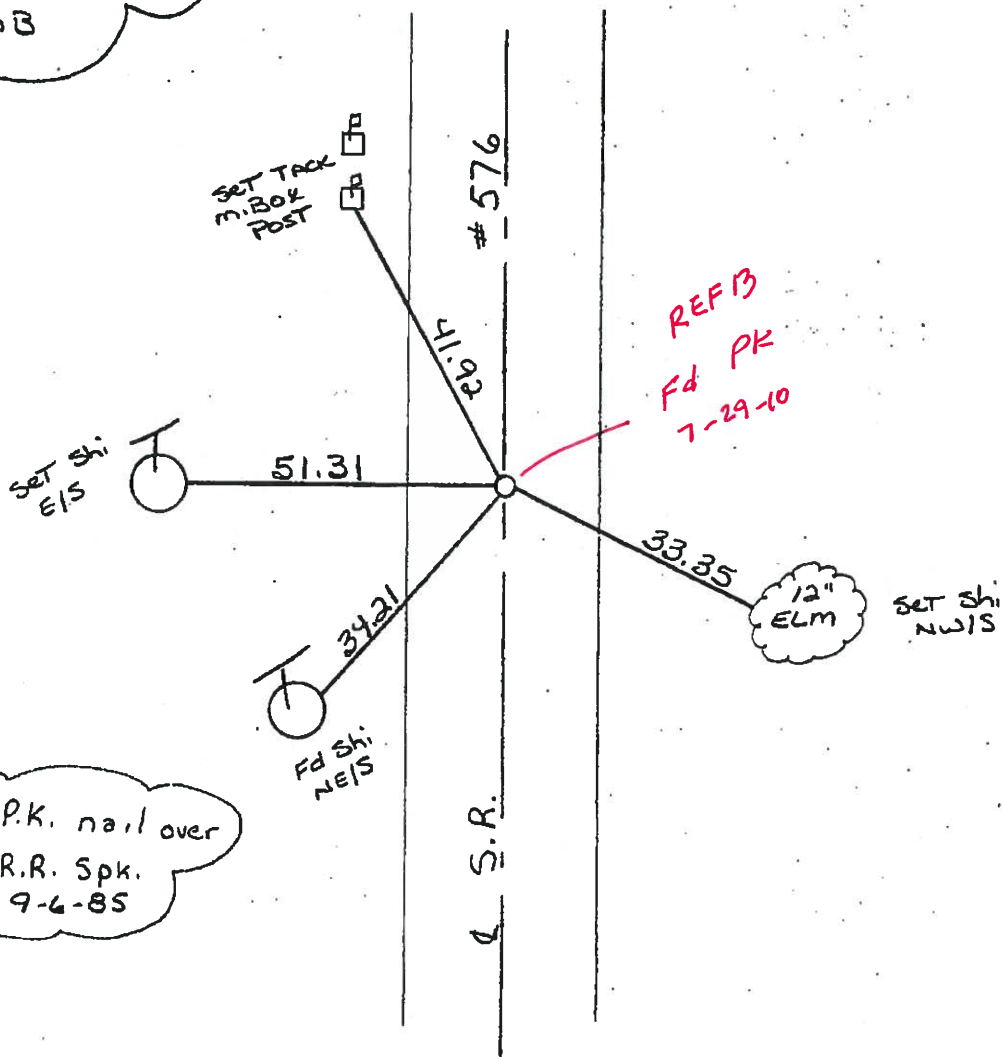 B
SET TACK
M.BOX
POST
# 576
REF B
Fd PK
7-29-10
41.92
SET Shi
E/S
51.31
33.35
12"
ELM
SET Shi
NW/S
34.21
Fd Shi
NE/S
P.K. nail over
R.R. Spk.
9-6-85
℄ S.R.